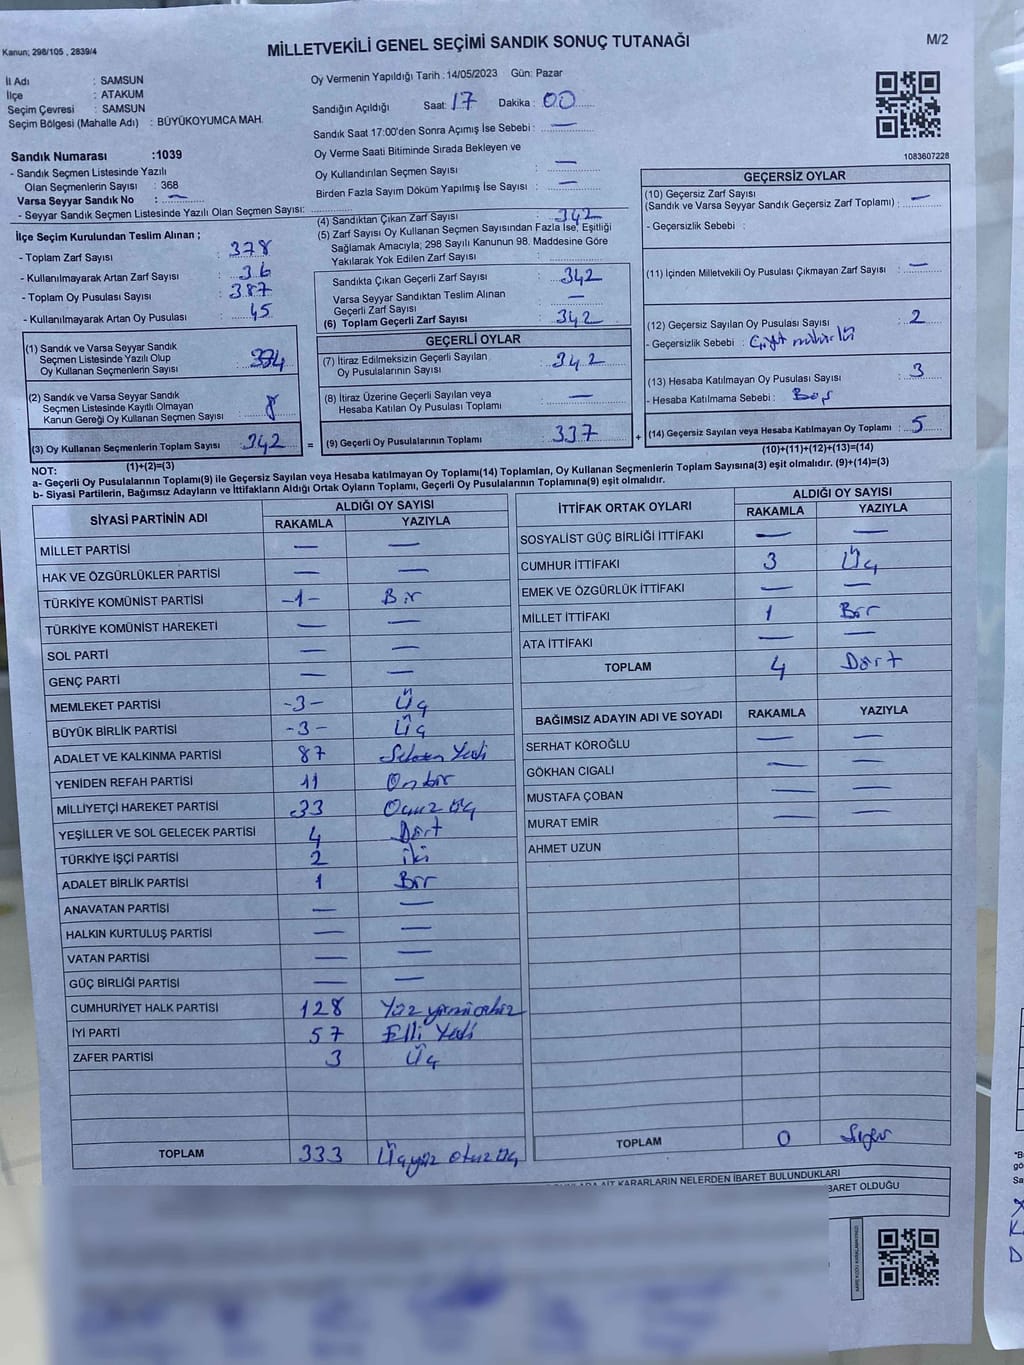 Kanun; 298/105 , 2839/4
MİLLETVEKİLİ GENEL SEÇİMİ SANDIK SONUÇ TUTANAĞI
M/2
İl Adı : SAMSUN
İlçe : ATAKUM
Seçim Çevresi : SAMSUN
Seçim Bölgesi (Mahalle Adı) : BÜYÜKOYUMCA MAH.
Oy Vermenin Yapıldığı Tarih : 14/05/2023 Gün: Pazar
Sandığın Açıldığı Saat: 17 Dakika : 00
Sandık Saat 17:00'den Sonra Açılmış İse Sebebi : —
Oy Verme Saati Bitiminde Sırada Bekleyen ve
Oy Kullandırılan Seçmen Sayısı : —
Birden Fazla Sayım Döküm Yapılmış İse Sayısı : —
1083607228
Sandık Numarası :1039
- Sandık Seçmen Listesinde Yazılı
Olan Seçmenlerin Sayısı : 368
Varsa Seyyar Sandık No : —
- Seyyar Sandık Seçmen Listesinde Yazılı Olan Seçmen Sayısı:
İlçe Seçim Kurulundan Teslim Alınan ;
- Toplam Zarf Sayısı : 378
- Kullanılmayarak Artan Zarf Sayısı : 36
- Toplam Oy Pusulası Sayısı : 387
- Kullanılmayarak Artan Oy Pusulası : 45
(1) Sandık ve Varsa Seyyar Sandık
Seçmen Listesinde Yazılı Olup
Oy Kullanan Seçmenlerin Sayısı : 334
(2) Sandık ve Varsa Seyyar Sandık
Seçmen Listesinde Kayıtlı Olmayan
Kanun Gereği Oy Kullanan Seçmen Sayısı : 8
(3) Oy Kullanan Seçmenlerin Toplam Sayısı : 342 =
(1)+(2)=(3)
(4) Sandıktan Çıkan Zarf Sayısı : 342
(5) Zarf Sayısı Oy Kullanan Seçmen Sayısından Fazla İse, Eşitliği
Sağlamak Amacıyla; 298 Sayılı Kanunun 98. Maddesine Göre
Yakılarak Yok Edilen Zarf Sayısı :
Sandıkta Çıkan Geçerli Zarf Sayısı : 342
Varsa Seyyar Sandıktan Teslim Alınan
Geçerli Zarf Sayısı : —
(6) Toplam Geçerli Zarf Sayısı : 342
GEÇERLİ OYLAR
(7) İtiraz Edilmeksizin Geçerli Sayılan
Oy Pusulalarının Sayısı : 342
(8) İtiraz Üzerine Geçerli Sayılan veya
Hesaba Katılan Oy Pusulası Toplamı : —
(9) Geçerli Oy Pusulalarının Toplamı : 337 +
GEÇERSİZ OYLAR
(10) Geçersiz Zarf Sayısı
(Sandık ve Varsa Seyyar Sandık Geçersiz Zarf Toplamı) : —
- Geçersizlik Sebebi :
(11) İçinden Milletvekili Oy Pusulası Çıkmayan Zarf Sayısı : —
(12) Geçersiz Sayılan Oy Pusulası Sayısı : 2
- Geçersizlik Sebebi : Çift mühürlü
(13) Hesaba Katılmayan Oy Pusulası Sayısı : 3
- Hesaba Katılmama Sebebi : Boş
(14) Geçersiz Sayılan veya Hesaba Katılmayan Oy Toplamı : 5
(10)+(11)+(12)+(13)=(14)
NOT:
a- Geçerli Oy Pusulalarının Toplamı(9) ile Geçersiz Sayılan veya Hesaba katılmayan Oy Toplamı(14) Toplamları, Oy Kullanan Seçmenlerin Toplam Sayısına(3) eşit olmalıdır. (9)+(14)=(3)
b- Siyasi Partilerin, Bağımsız Adayların ve İttifakların Aldığı Ortak Oyların Toplamı, Geçerli Oy Pusulalarının Toplamına(9) eşit olmalıdır.
SİYASİ PARTİNİN ADI ALDIĞI OY SAYISI
RAKAMLA YAZIYLA
MİLLET PARTİSİ — —
HAK VE ÖZGÜRLÜKLER PARTİSİ — —
TÜRKİYE KOMÜNİST PARTİSİ -1- Bir
TÜRKİYE KOMÜNİST HAREKETİ — —
SOL PARTİ — —
GENÇ PARTİ — —
MEMLEKET PARTİSİ -3- Üç
BÜYÜK BİRLİK PARTİSİ -3- Üç
ADALET VE KALKINMA PARTİSİ 87 Seksen Yedi
YENİDEN REFAH PARTİSİ 11 Onbir
MİLLİYETÇİ HAREKET PARTİSİ 33 Otuz üç
YEŞİLLER VE SOL GELECEK PARTİSİ 4 Dört
TÜRKİYE İŞÇİ PARTİSİ 2 iki
ADALET BİRLİK PARTİSİ 1 Bir
ANAVATAN PARTİSİ — —
HALKIN KURTULUŞ PARTİSİ — —
VATAN PARTİSİ — —
GÜÇ BİRLİĞİ PARTİSİ — —
CUMHURİYET HALK PARTİSİ 128 Yüz yirmi sekiz
İYİ PARTİ 57 Elli Yedi
ZAFER PARTİSİ 3 Üç
TOPLAM 333 Üçyüz otuz üç
İTTİFAK ORTAK OYLARI ALDIĞI OY SAYISI
RAKAMLA YAZIYLA
SOSYALİST GÜÇ BİRLİĞİ İTTİFAKI — —
CUMHUR İTTİFAKI 3 Üç
EMEK VE ÖZGÜRLÜK İTTİFAKI — —
MİLLET İTTİFAKI 1 Bir
ATA İTTİFAKI — —
TOPLAM 4 Dört
BAĞIMSIZ ADAYIN ADI VE SOYADI RAKAMLA YAZIYLA
SERHAT KÖROĞLU — —
GÖKHAN CIGALI — —
MUSTAFA ÇOBAN — —
MURAT EMİR — —
AHMET UZUN
TOPLAM 0 Sıfır
AİT KARARLARIN NELERDEN İBARET BULUNDUKLARI
BARET OLDUĞU